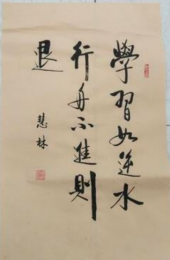 學習如逆水
行舟不進則
退
慧林